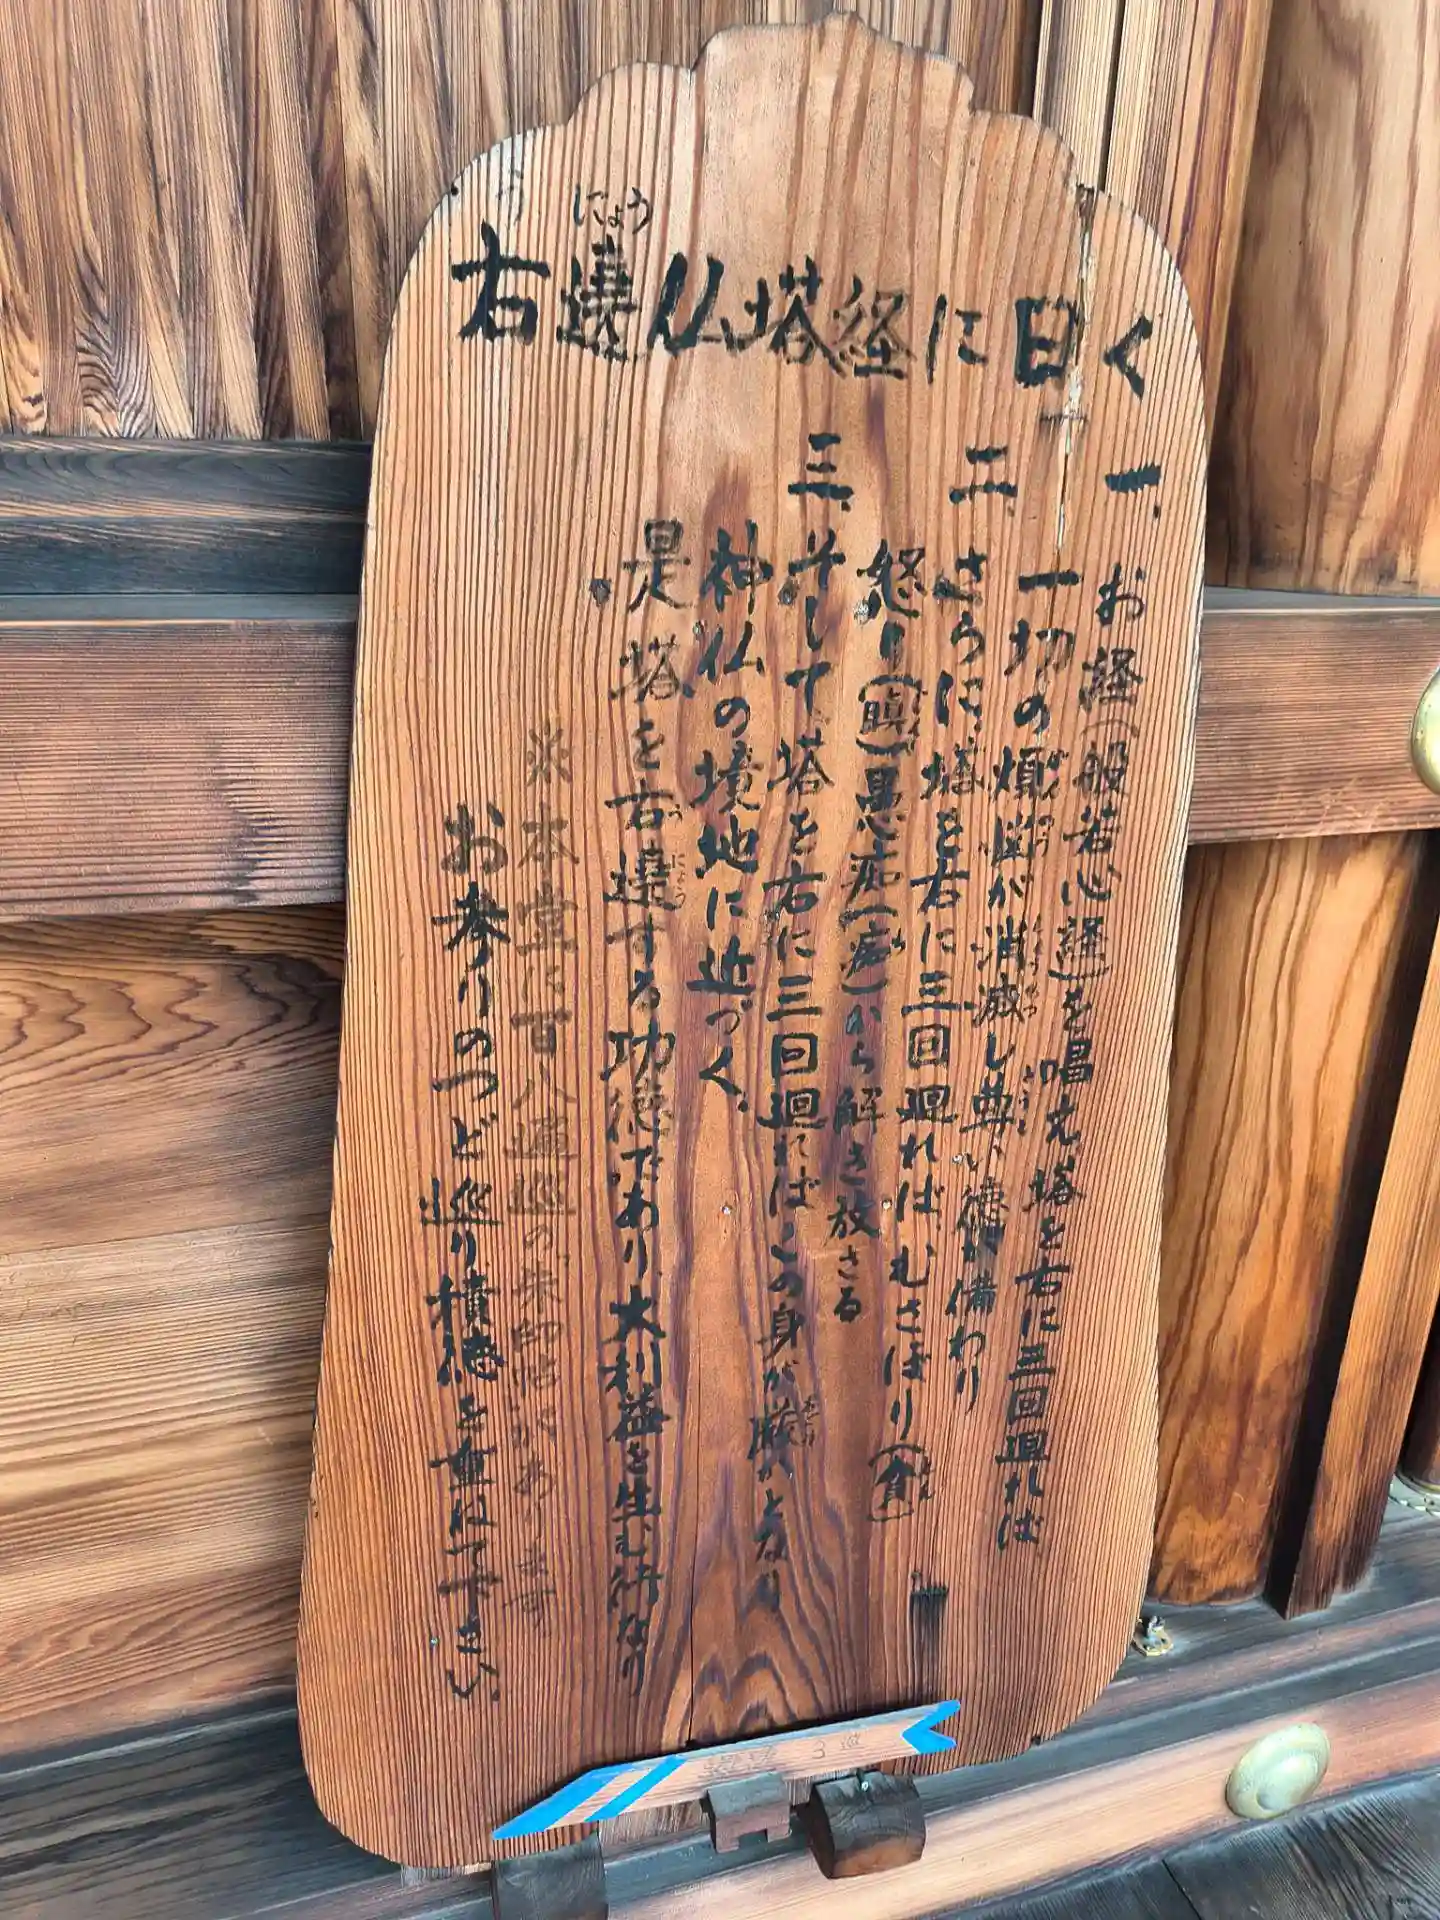 右遶仏塔経に曰く
にょう
一、お経(般若心経)を唱え塔を右に三回廻れば
一切の煩悩が消滅し尊い徳が備わり
二、さらに塔を右に三回廻ればむさぼり(貪)
怒り(瞋)愚痴(痴)から解き放さる
三、そして塔を右に三回廻ればこの身が厳かとなり
神仏の境地に近づく。
是塔を右遶する功徳であり、大利益を生む術なり
※本堂に百八遍巡の
お参りのつど巡り積徳を重ねて下さい
3遍